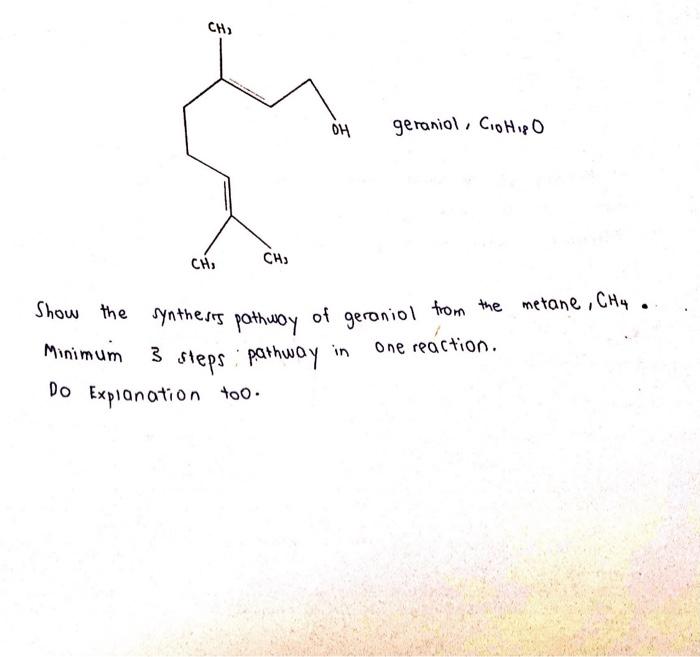 CH₃
OH
geraniol, C₁₀H₁₈O
CH₃
CH₃
Show the synthesis pathway of geraniol from the metane, CH₄.
Minimum 3 steps pathway in one reaction.
Do Explanation too.